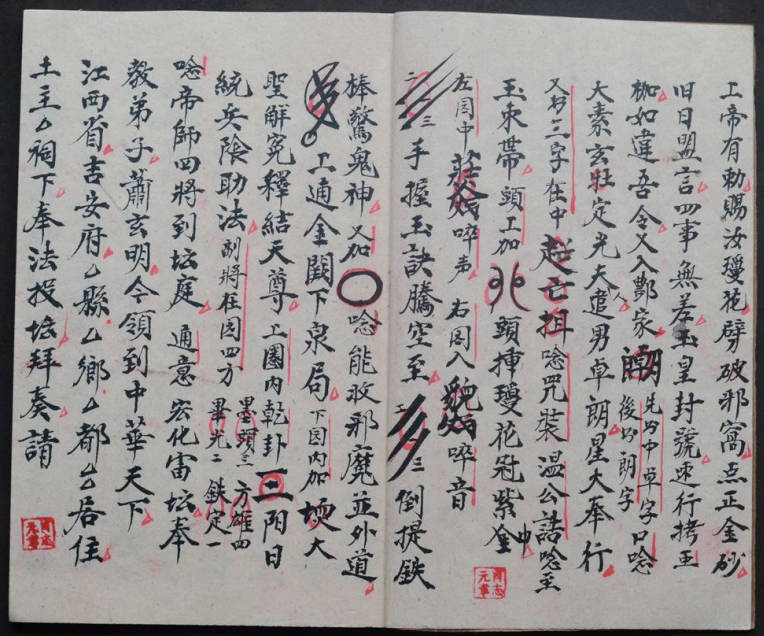 上帝有勅賜汝瓊花劈破邪窩点正金砂
旧日盟言四事無差玉皇封號速行拷王
枷如違吾令又入酆家 後出朗字 先出中卓字口唸
大素玄牡定光夫追男卓朗星大奉行
又书三字在中 唸咒裝温公誥唸至
玉束帶頭上加 頭揷瓊花冠紫金
左圆中 啐声 右圆入 啐音
二一三手握玉訣騰空至 三倒提鉄
棒驚鬼神又加〇唸能收邪魔並外道
上通金闕下泉局下圆内加 大
聖解冤釋結天尊上圈内乾卦三阳日
統兵陰助法副將在圆四方 墨頭三 方雄四 畢光二 鉄定一
唸帝師四將到坛庭適意宏化宙坛奉
教弟子蕭玄明今領到中華天下
江西省吉安府厶縣厶鄉厶都厶居住
土主厶祠下奉法投坛拜奏請